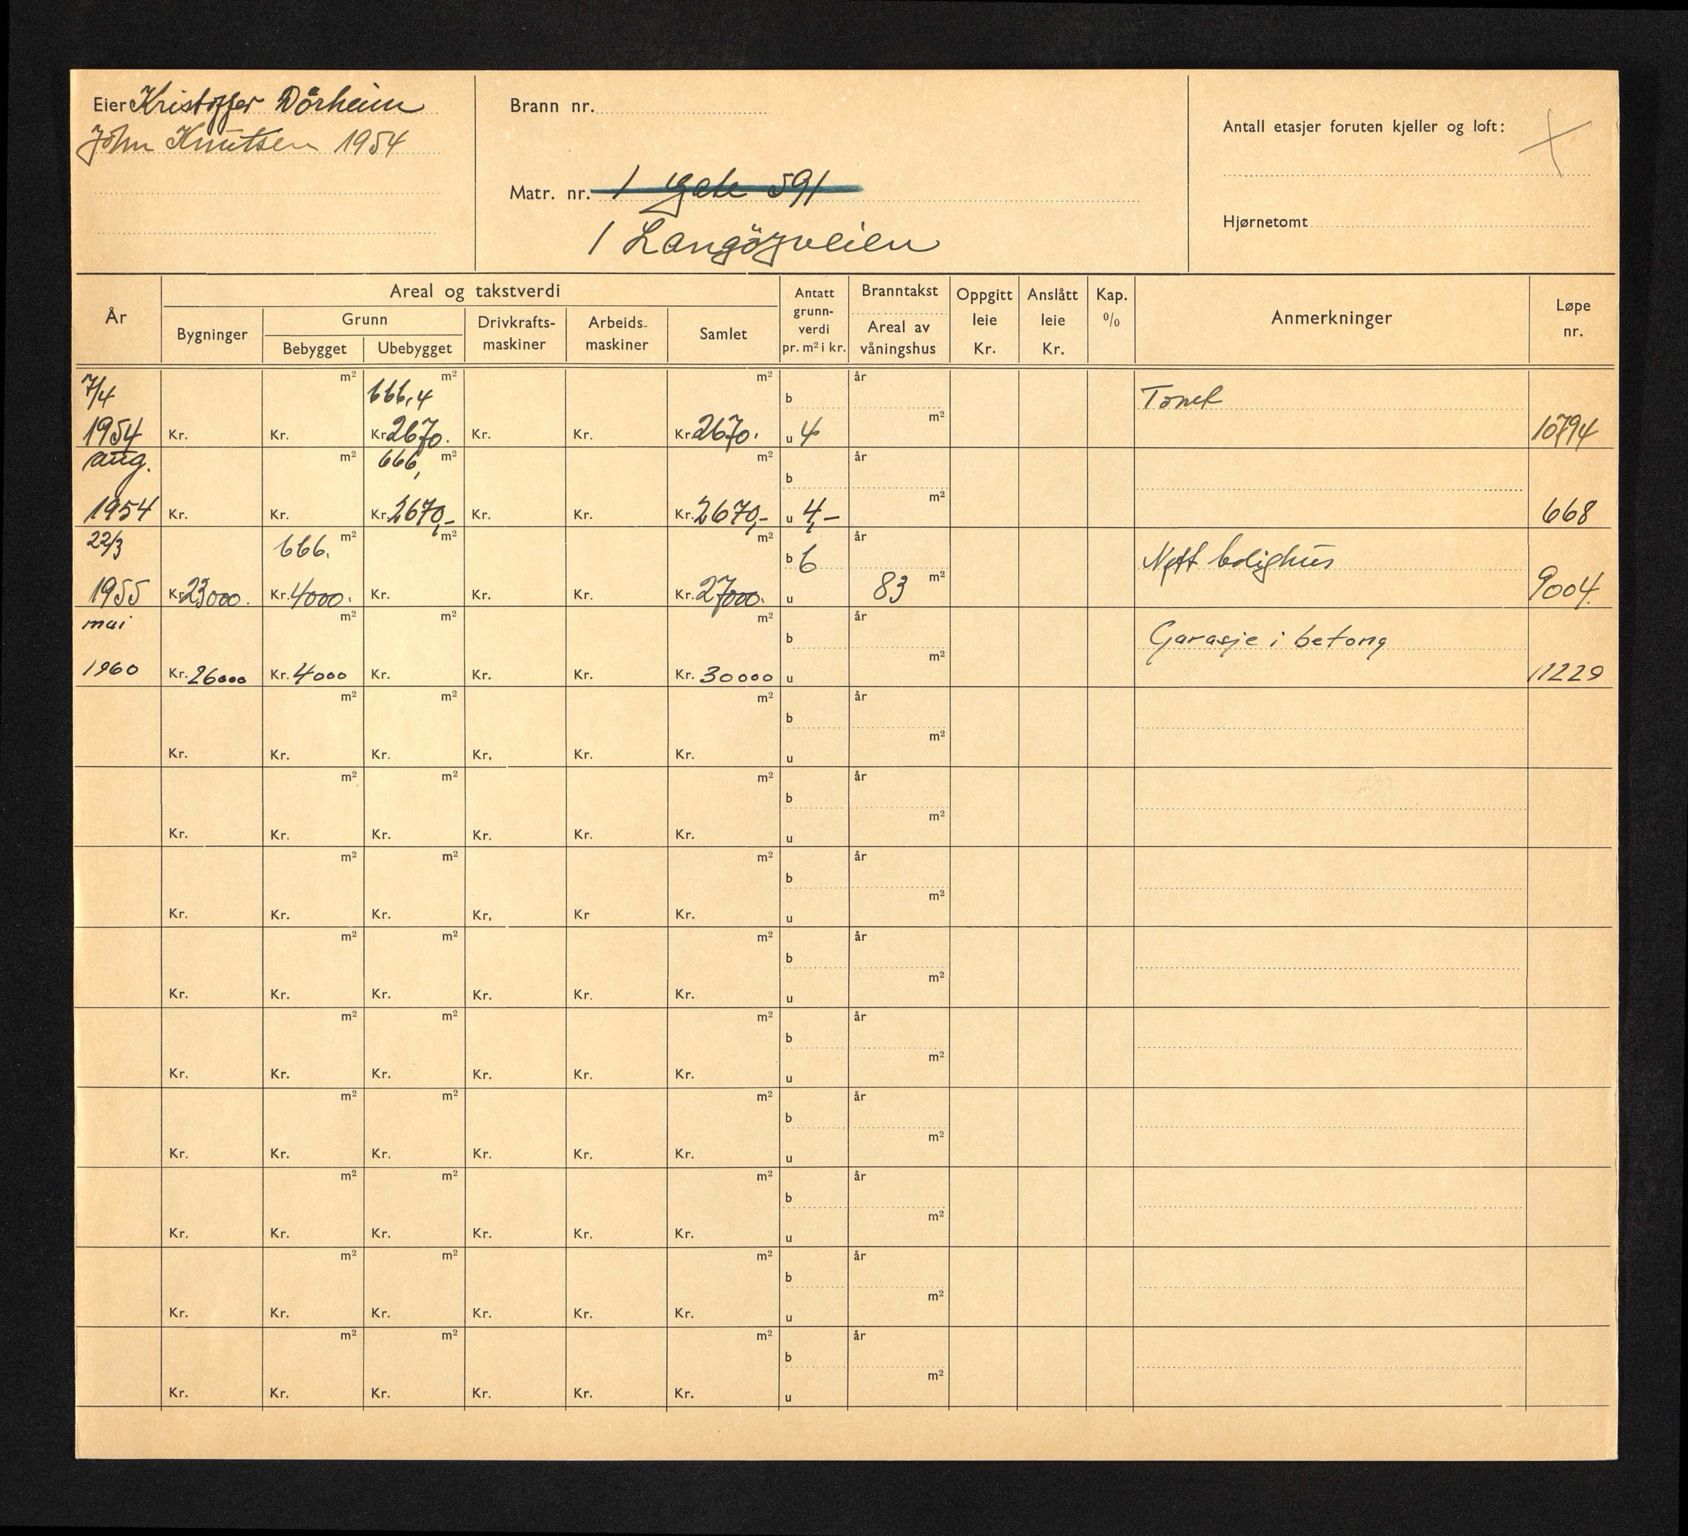 Eier Kristoffer Dörheim
John Knutsen 1954
Brann nr.
Matr. nr. 1 Gate 591
1 Langöyveien
Antall etasjer foruten kjeller og loft:
Hjørnetomt
År
Areal og takstverdi
Bygninger
Grunn
Bebygget Ubebygget
Drivkrafts-
maskiner
Arbeids-
maskiner
Samlet
Antatt
grunn-
verdi
pr. m² i kr.
Branntakst
Areal av
våningshus
Oppgitt
leie
Kr.
Anslått
leie
Kr.
Kap.
%
Anmerkninger
Løpe
nr.
7/4 m² 666,4 m² m² b år Tomt
1954 Kr. Kr. Kr. 2670. Kr. Kr. Kr. 2670. u 4 m² 10794
aug. m² 666, m² m² b år
1954 Kr. Kr. Kr. 2670,- Kr. Kr. Kr. 2670,- u 4,- m² 668
22/3 666. m² m² m² b 6 år Nytt bolighus
1955 Kr. 23000. Kr. 4000. Kr. Kr. Kr. Kr. 27000. u 83 m² 9004.
mai m² m² m² b år Garasje i betong
1960 Kr. 26000 Kr. 4000 Kr. Kr. Kr. Kr. 30000 u m² 11229
m² m² m² b år
Kr. Kr. Kr. Kr. Kr. Kr. u m²
m² m² m² b år
Kr. Kr. Kr. Kr. Kr. Kr. u m²
m² m² m² b år
Kr. Kr. Kr. Kr. Kr Kr. u m²
m² m² m² b år
Kr. Kr. Kr. Kr. Kr. Kr. u m²
m² m² m² b år
Kr. Kr. Kr. Kr. Kr. Kr. u m²
m² m² m² b år
Kr. Kr. Kr. Kr. Kr. Kr. u m²
m² m² m² b år
Kr. Kr. Kr. Kr. Kr. Kr. u m²
m² m² m² b år
Kr. Kr. Kr. Kr. Kr. Kr. u m²
m² m² m² b år
Kr. Kr. Kr. Kr. Kr. Kr. u m²